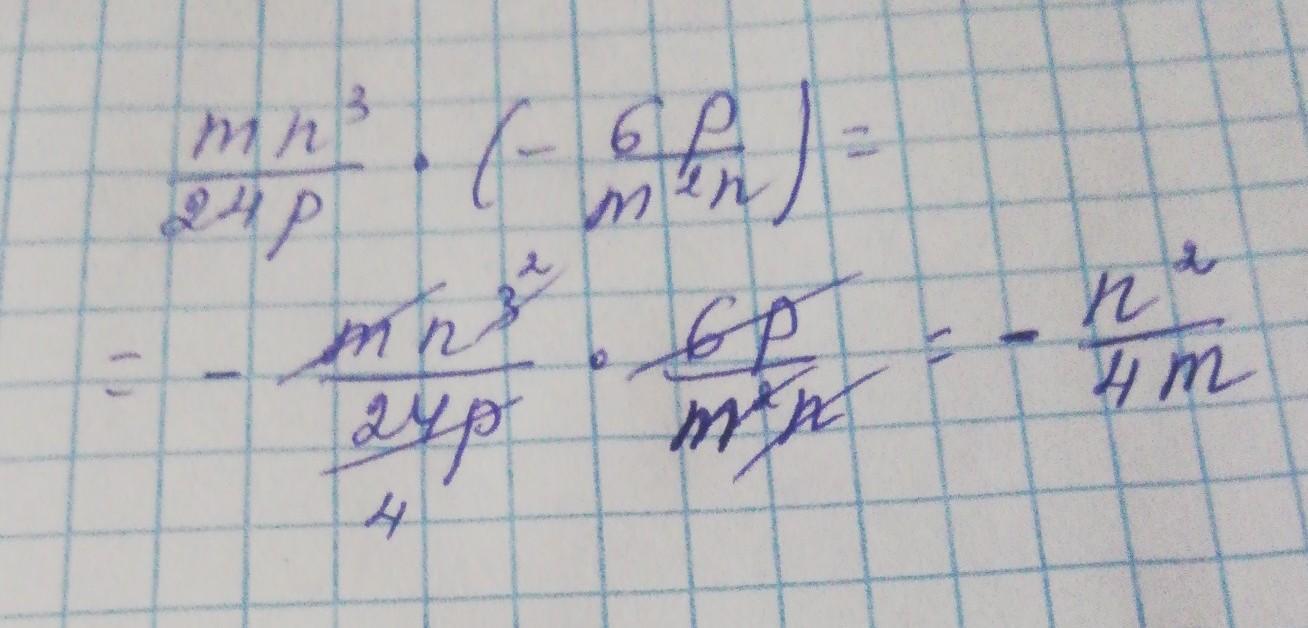 mn³/24p · (- 6p/m²n) =
= - mn³²/24p4 · 6p/m²n = - n²/4m